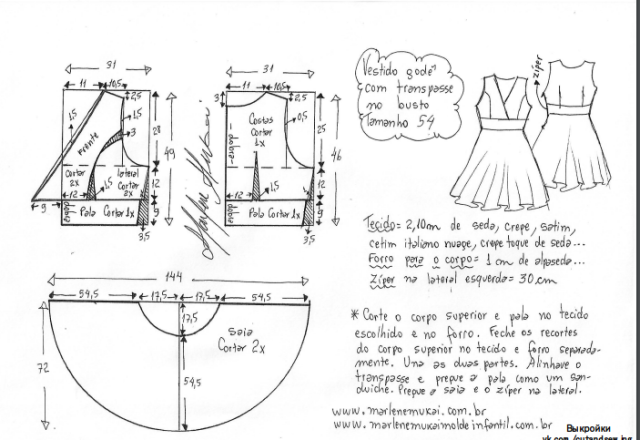 31
11
10,5
2,5
1,5
1,5
3
28
49
Frente
Cortar
2x
lateral
Cortar
2x
12
1,5
12
9
dobra
Pala Cortar 1x
9
3,5
31
11
10,5
2,5
0,5
Costas
Cortar
1x
-dobra-
25
46
12
1,5
12
dobra
Pala Cortar 1x
9
3,5
Vestido godê
com transpasse
no busto
Tamanho 54
zíper
Tecido = 2,10m de seda, crepe, satim,
cetim italiano nuage, crepe toque de seda...
Forro para o corpo = 1 cm de alpaseda...
Zíper na lateral esquerda = 30 cm
144
54,5
17,5
17,5
54,5
17,5
saia
Cortar 2x
72
54,5
* Corte o corpo superior e pala no tecido
escolhido e no forro. Feche os recortes
do corpo superior no tecido e forro separada-
mente. Una as duas partes. Alinhave o
transpasse e pregue a pala como um san-
duiche. Pregue a saia e o zíper na lateral.
www.marlenemukai.com.br
www.marlenemukaimoldeinfantil.com.br
Выкройки